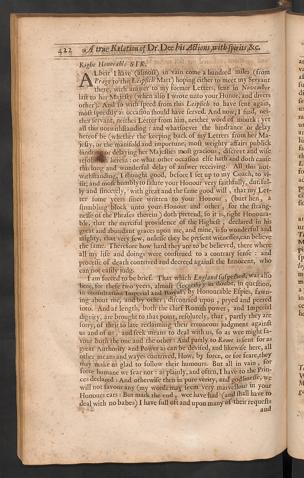 422 A true Relation of Dr. Dee his Actions, with spirits, &c.
Right Honorable SIR,
ALbeit I have (almost) in vain come a hundred miles (from
Prage to this Leipsich Mart) hoping either to meet my Servant
there, with answer to my former Letters, sent in November
last to her Majesty (when also I wrote unto your Honor, and divers
other). And so with speed from this Leipsich to have sent again,
most speedily as occasion should have served. And now I find, nei-
ther servant, neither Letter from him, neither word of mouth: yet
all this notwithstanding, and whatsoever the hindrance or delay
hereof be (whether the keeping back of my Letters from her Ma-
jesty, or the manifold and important, most weighty affairs publick
hindering or delaying her Majesties most gracious, discreet and wise
herein: or what other occasion else hath and doth cause
this long and wonderful delay of answer receiving. All this not-
withstanding, I thought good, before I set up to my Coach, to vi-
sit, and most humbly to salute your Honour very faithfully, dutiful-
ly and sincerely, with great and the same good will, that my Let-
ter some years since written to your Honour, (but then, a
stumbling block unto your Honour and other, for the strange-
nesse of the Phrases therein) doth pretend, so it is, right Honoura-
ble, that the merciful providence of the Highest, declared in his
great and abundant graces upon me, and mine, is so wonderful and
mighty, that very few, unlesse they be present witnesses, can believe
the same. Therefore how hard they are to be believed, there where
all my life and doings were construed to a contrary sense: and
processe of death contrived and decreed against the Innocent, who
can not easily judg.
I am forced to be brief. That which England suspected, was also
here, for these two years, almost (secretly) in doubt, in question,
in consultation Imperial and Royal, by Honourable Espies, fawn-
ing about me, and by other, discoursed upon, pryed and peered
into. And at length, both the chief Romish power, and Imperial
dignity, are brought to that point, resolutely, that, partly they are
sorry, of their so late reclaiming their erroneous judgment against
us and of us, and seek means to deal with us, so as wee might fa-
vour both the one and the other: And partly to Rome is sent for as
great Authority and Power as can be devised, and likewise here, all
other means and wayes contrived, How, by force, or for feare, they
may make us glad to follow their humours. But all in vain, for
force humane we fear not: as plainly, and often, I have to the Prin-
ces declared: And otherwise then in pure verity, and godlinesse, we
will not favour any (my words may seem very marvellous in your
Honours ears: But mark the end, wee have had (and shall have to
deal with no babes) I have full oft and upon many of their requests
and